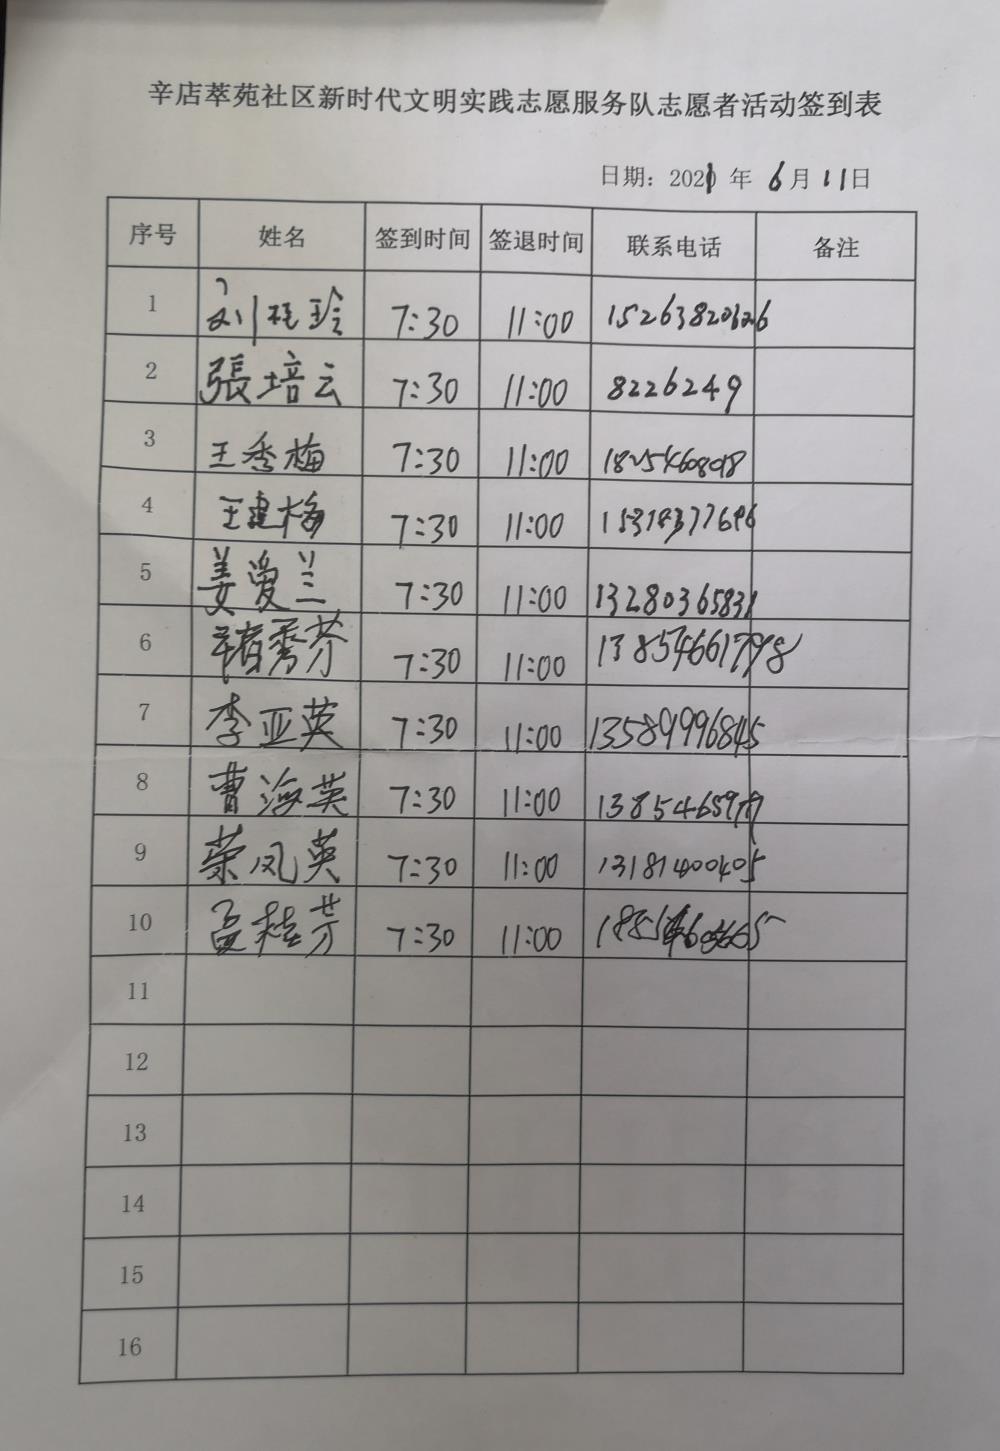 辛店萃苑社区新时代文明实践志愿服务队志愿者活动签到表
日期：2021年 6月11日
序号 姓名 签到时间 签退时间 联系电话 备注
1 刘桂玲 7:30 11:00
2 張培云 7:30 11:00 8226249
3 王秀梅 7:30 11:00
4 王建梅 7:30 11:00 15314377696
5 姜爱兰 7:30 11:00 13280365831
6 秀芬 7:30 11:00 13854661798
7 李亚英 7:30 11:00 13589996845
8 曹海英 7:30 11:00
9 荣凤英 7:30 11:00 13181400405
10 孟桂芳 7:30 11:00
11
12
13
14
15
16